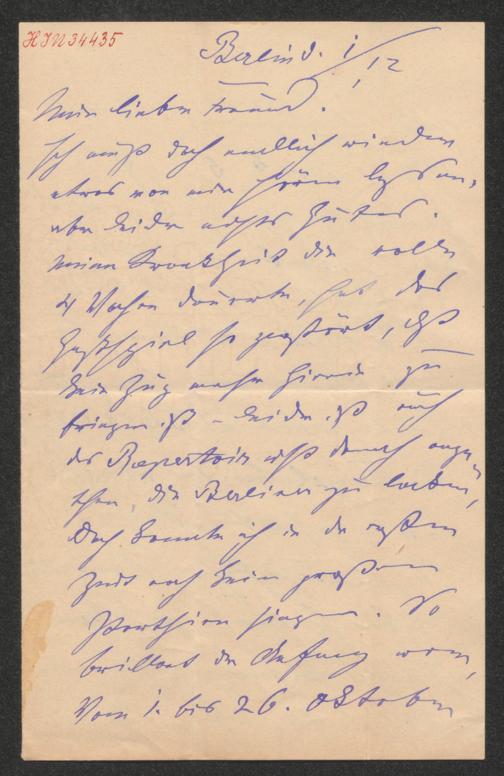 HIN 34435
Berlin d. 1/12
Mein lieber Freund.
Ich muß doch endlich wieder
etwas von mir hören lassen,
aber leider nichts Gutes.
Meine Krankheit die volle
4 Wochen dauerte, hat das
Gastspiel so gestört, daß
kein Zug mehr hinein zu
bringen ist – leider ist auch
das Repertoir nicht darnach
die Berliner zu locken,
doch konnte ich in der ersten
Zeit noch keine großen
Parthien singen. So
brillant der Anfang war,
Vom 1. bis 26. Oktober